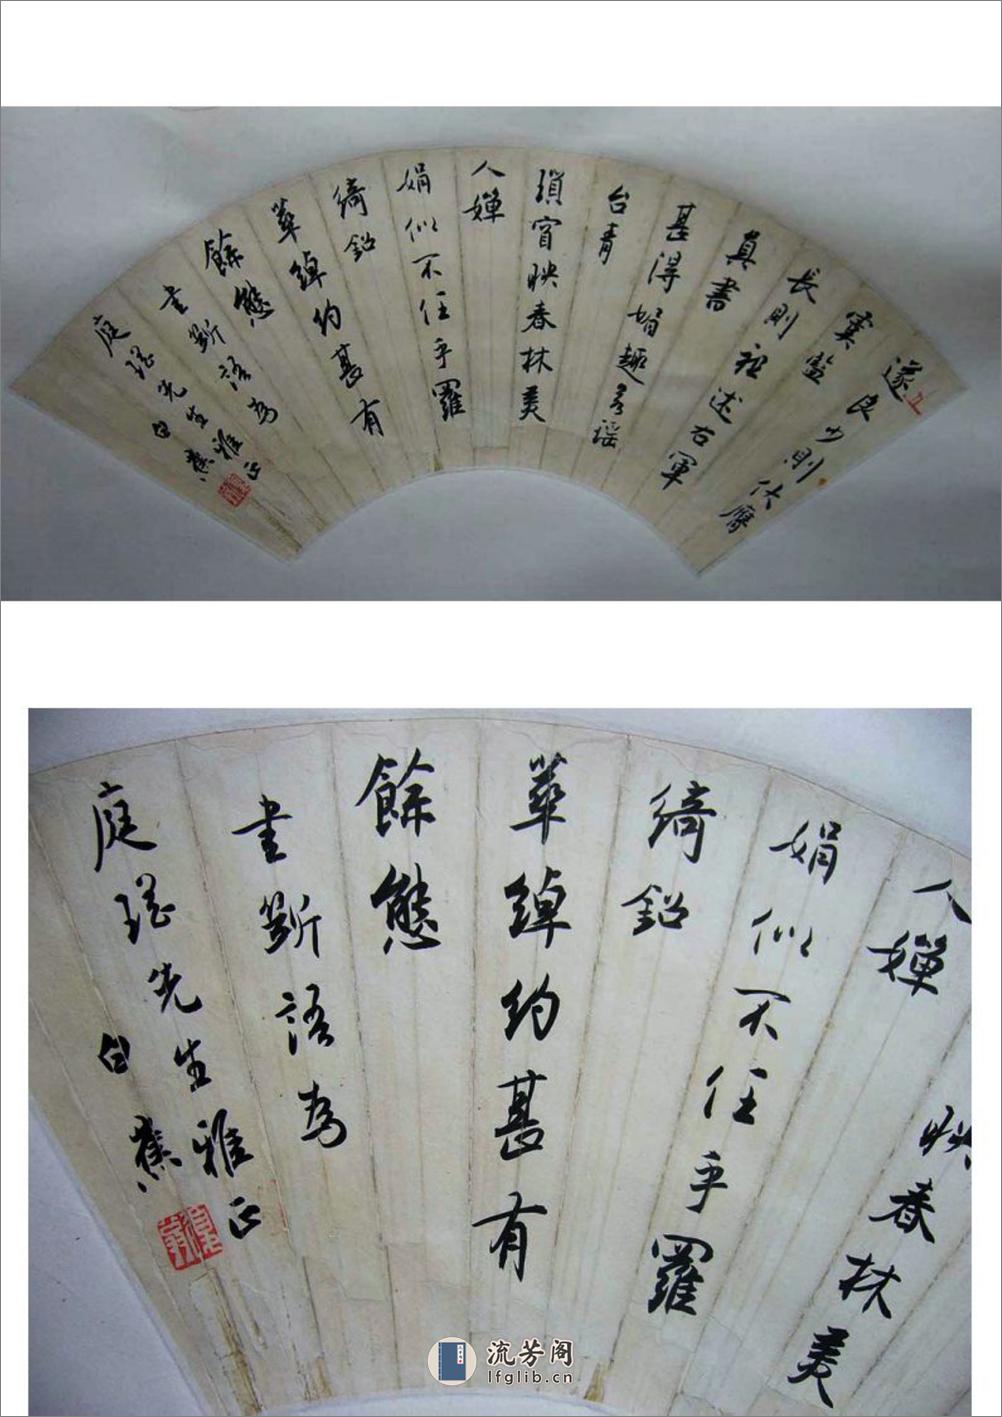 遂
寞監良少則伏膺
長則祖述右軍
真書
甚得媚趣若瑤
台青
瑣窅映春林美
人嬋
娟似不任乎羅
綺鉛
華綽約甚有
餘態
書斯語為
庭瑤先生雅正
白蕉
人嬋
映春林美
娟似不任乎羅
綺鉛
華綽約甚有
餘態
書斯語為
庭瑤先生雅正
白蕉
流芳阁
lfglib.cn